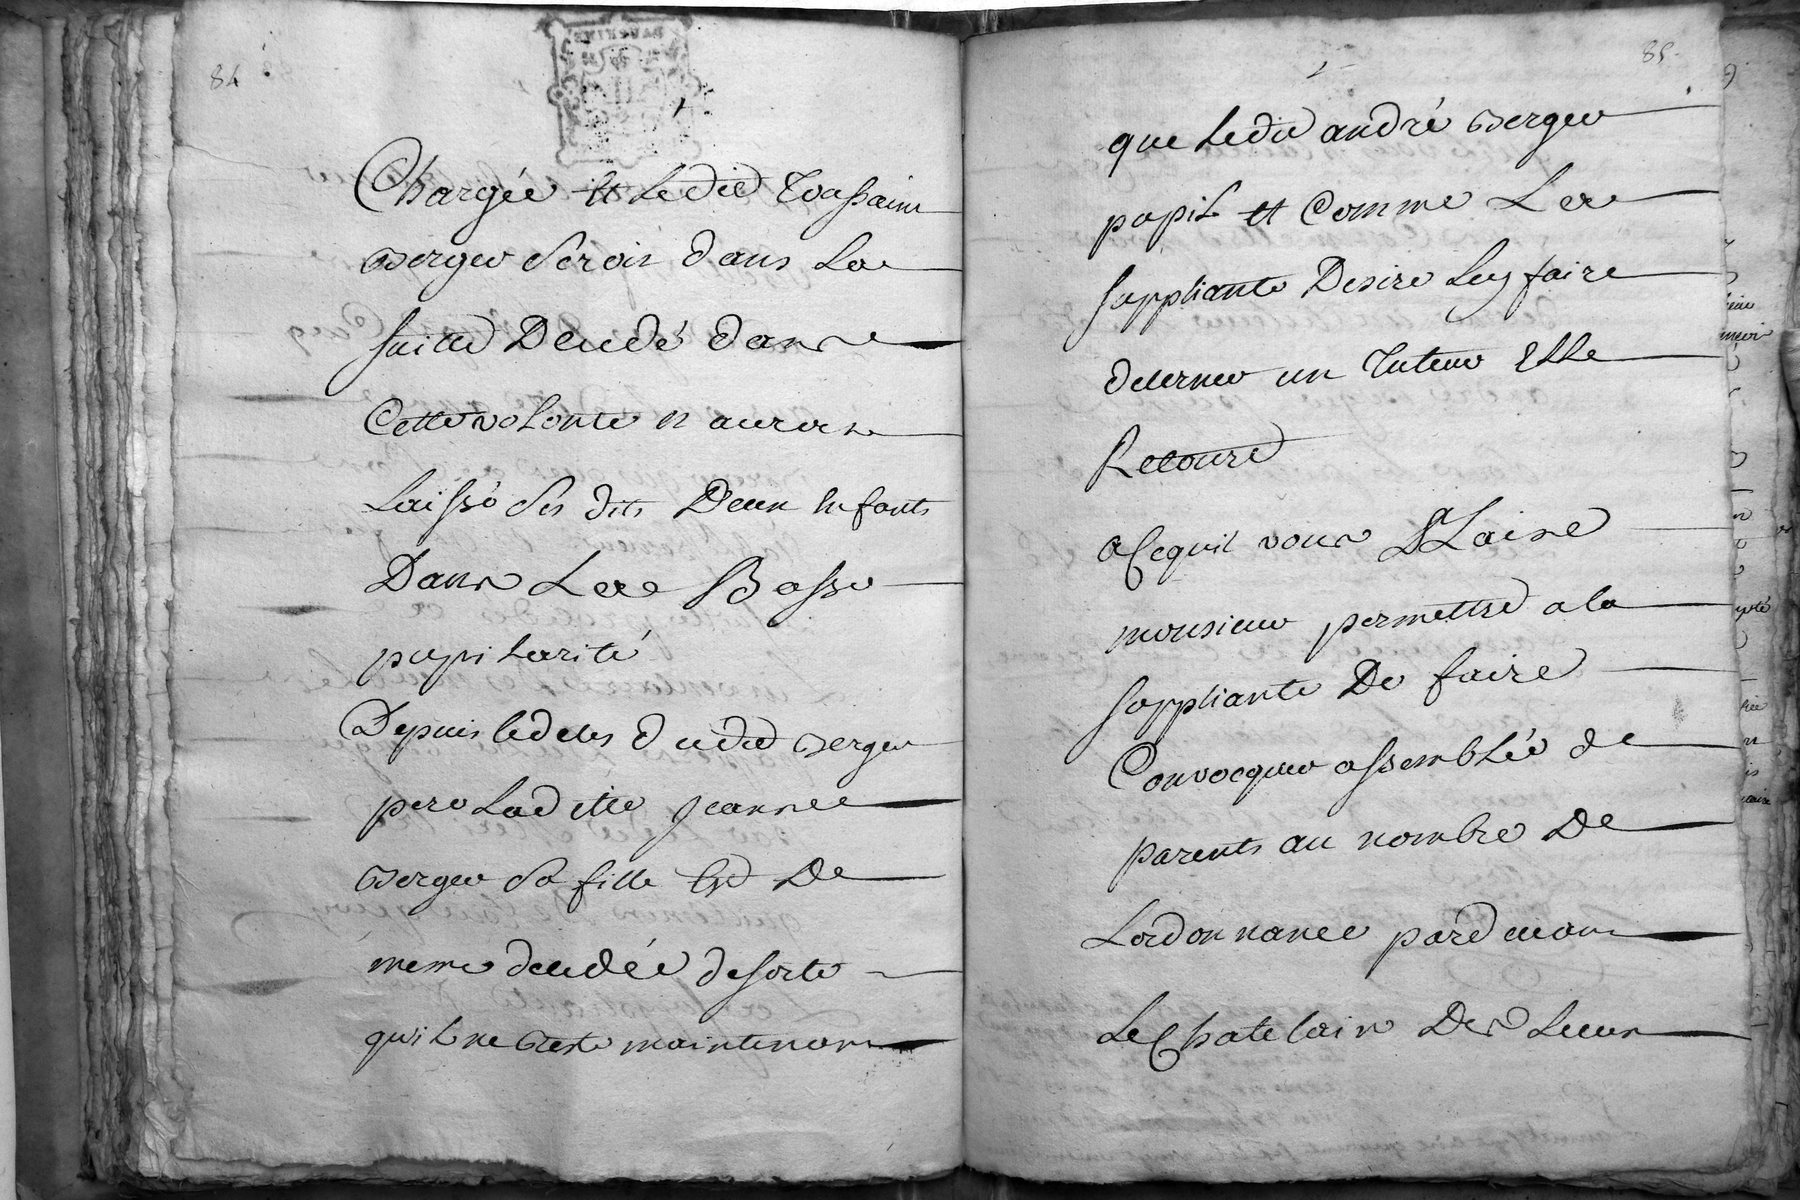 84
Chargée et ledit Toussaint
Berger seroit dans la
suitte decedé dans
Cette volonte et auroit
laissé ses dits deux enfants
Dans la Basse
pupilarité
Depuis ledeces dudit Berger
pere laditte jeanne
Berger sa fille est de
meme decedée desorte
quil ne reste maintenant
85
que ledit andré Berger
pupil et comme La
suppliante Desire luy faire
decerner un Tuteur Elle
Recourt
aCequil vous Plaise
monsieur permettre a la
suppliante De faire
Convocquer assemblée de
parents au nombre De
Lordonnance pardevant
Le Chatelain Des Lieux